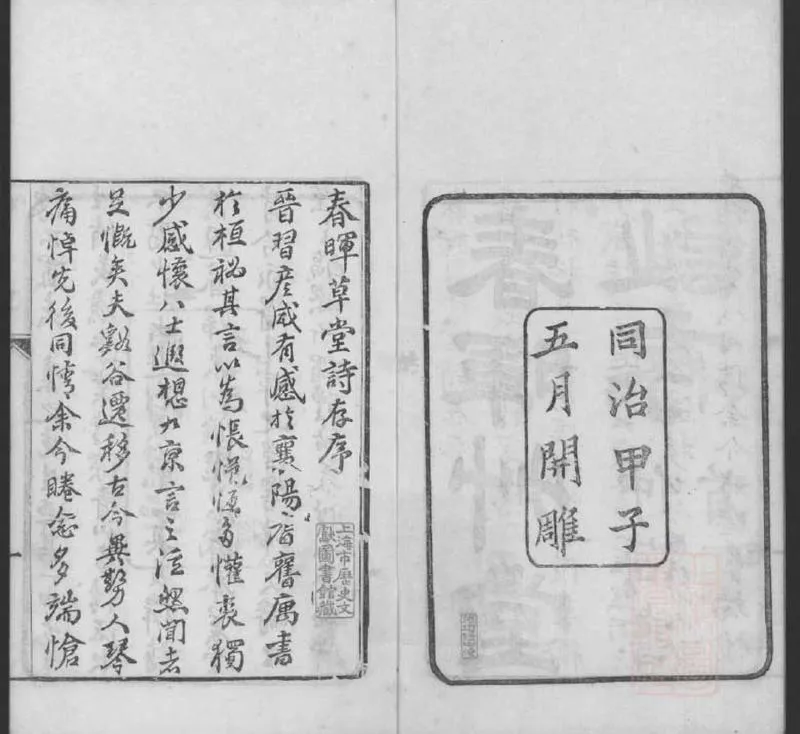 同治甲子
五月開雕
春暉草堂詩存序
晉習彦威有感於襄陽眉舊屬書
於桓祕其言以為悵怳恆多懽衷獨
少感懷八士遐想九京言之泫然聞者
足慨矣夫谿谷遷移古今異勢人琴
痛悼先後同情余今睠念多端愴
上海市歷史文
獻圖書館藏